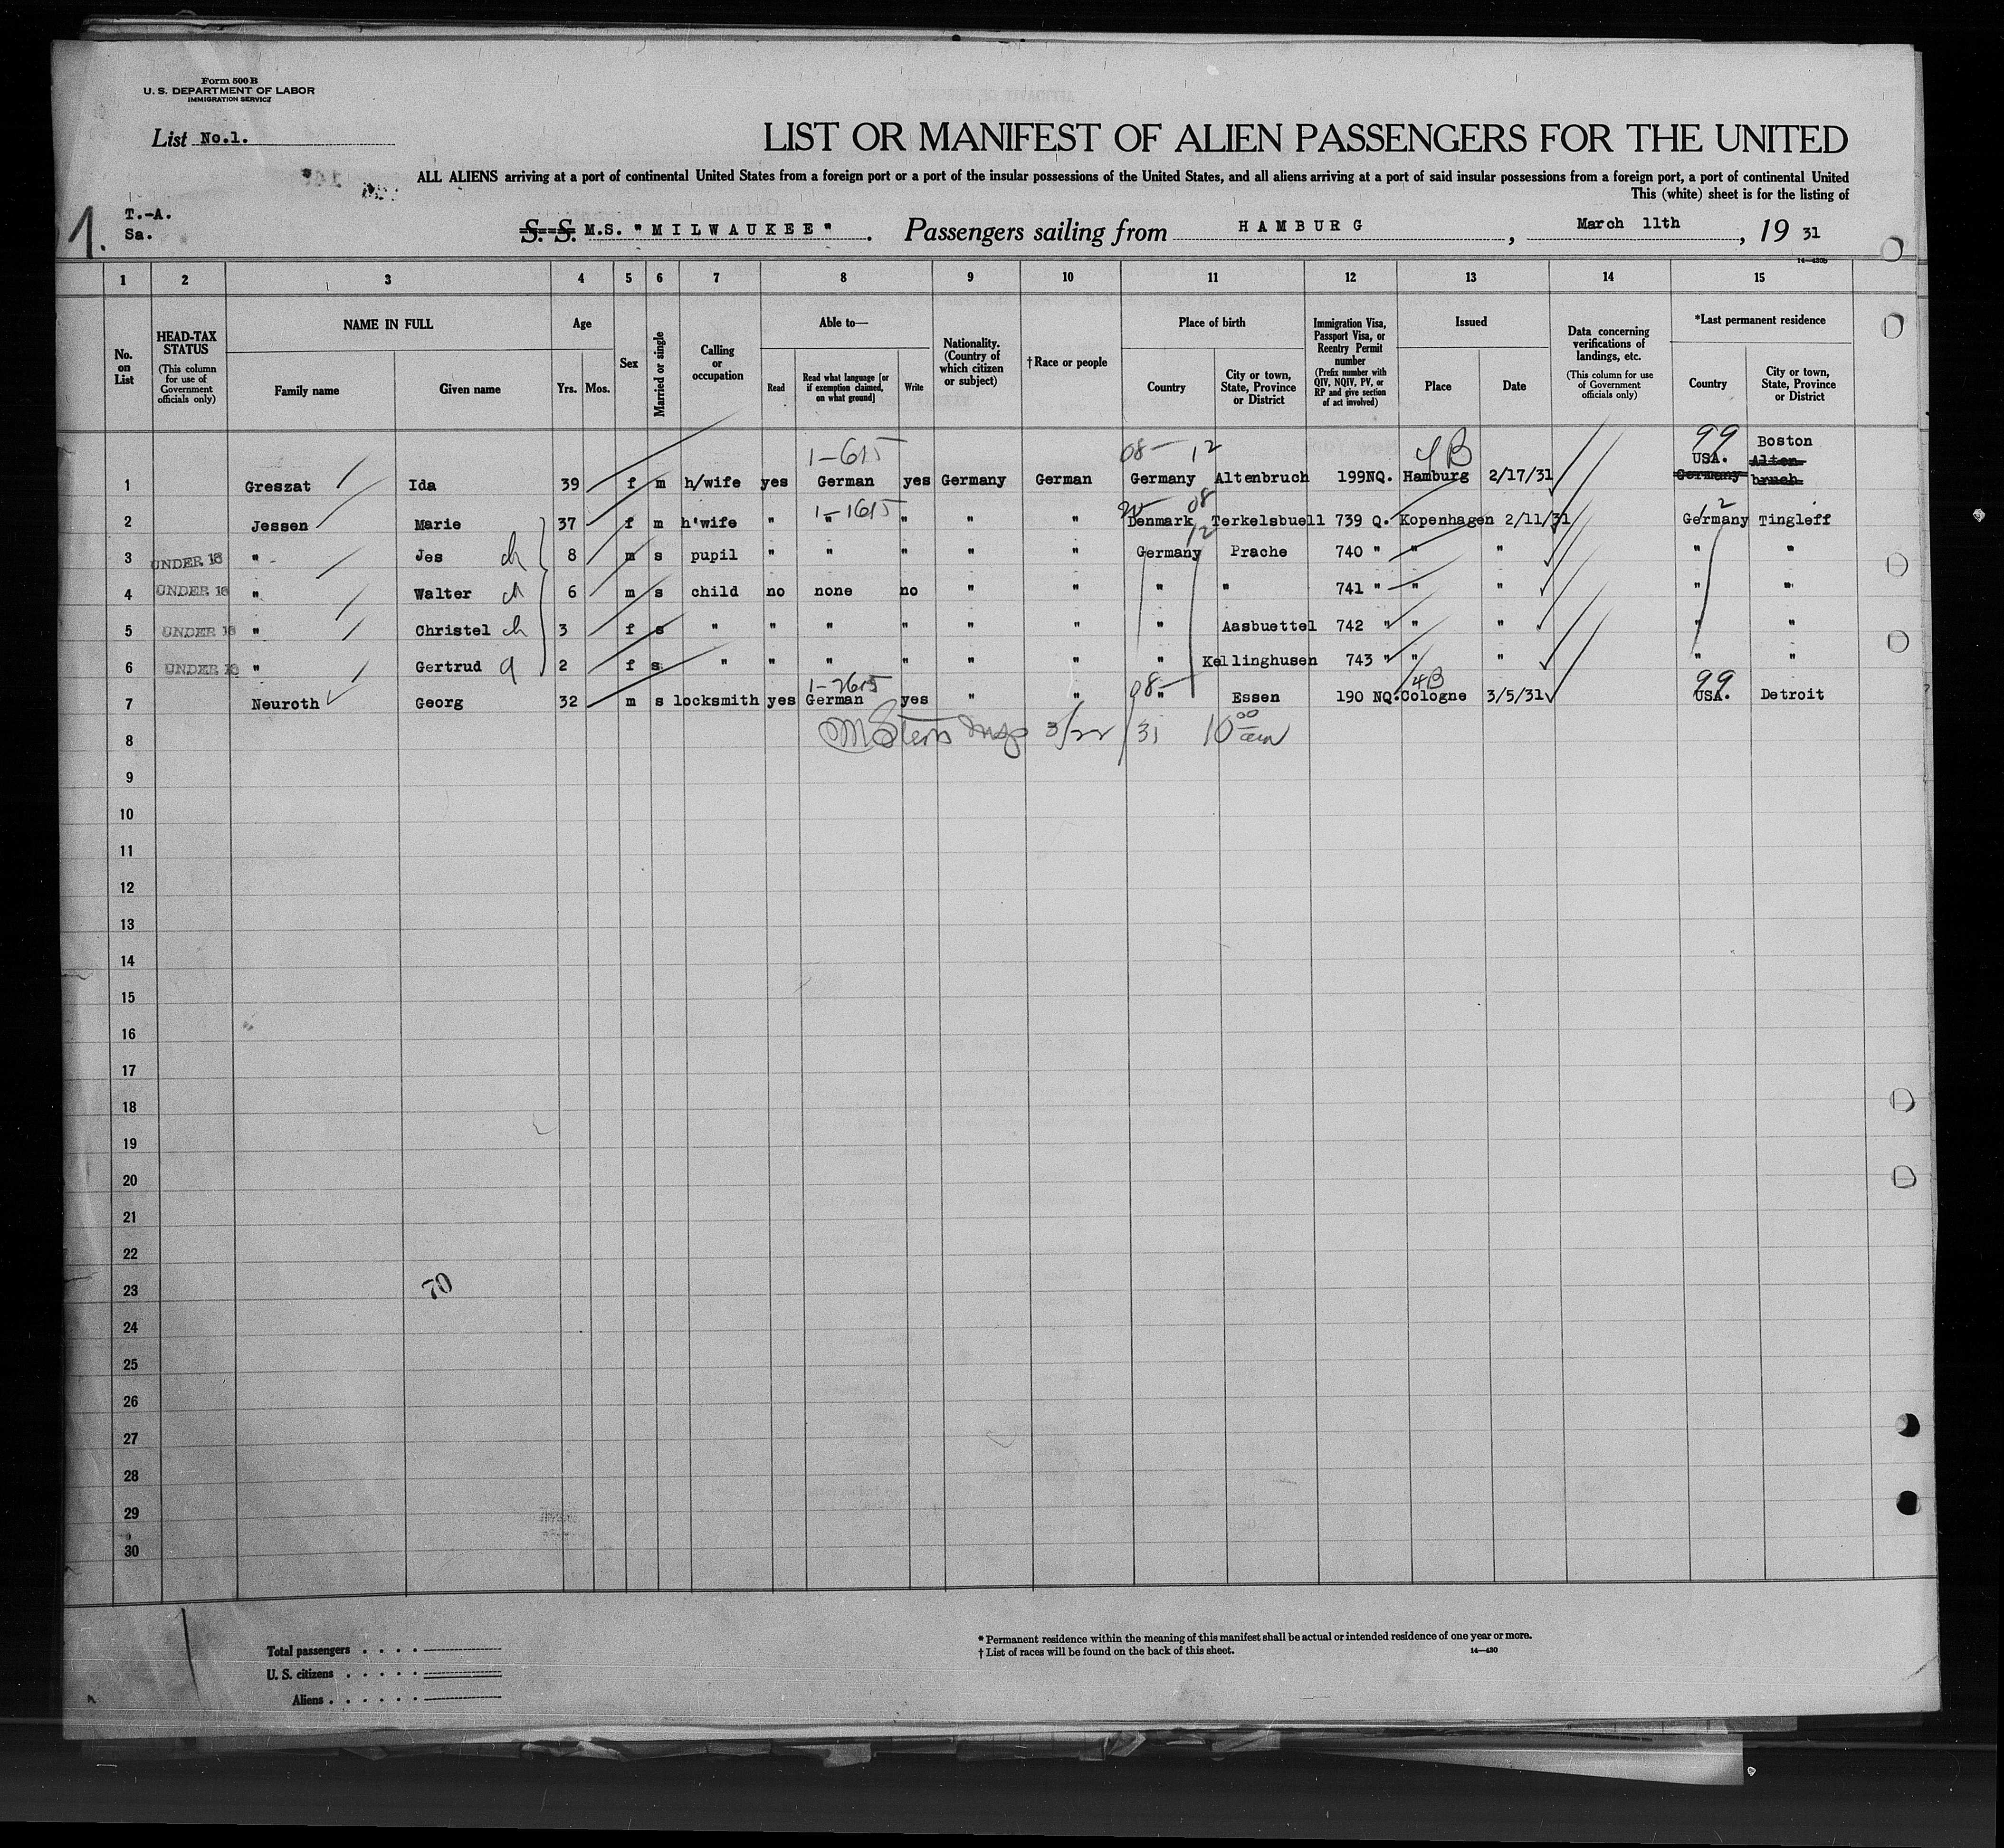 Form 500 B
U. S. DEPARTMENT OF LABOR
IMMIGRATION SERVICE
List No.1.
LIST OR MANIFEST OF ALIEN PASSENGERS FOR THE UNITED
ALL ALIENS arriving at a port of continental United States from a foreign port or a port of the insular possessions of the United States, and all aliens arriving at a port of said insular possessions from a foreign port, a port of continental United
This (white) sheet is for the listing of
T.-A.
Sa.
1.
S. S. M.S. "MILWAUKEE". Passengers sailing from HAMBURG, March 11th, 19 31
14—430b
1 2 3 4 5 6 7 8 9 10 11 12 13 14 15
No. on List
HEAD-TAX STATUS (This column for use of Government officials only)
NAME IN FULL
Family name Given name
Age
Yrs. Mos.
Sex
Married or single
Calling or occupation
Able to—
Read
Read what language [or if exemption claimed, on what ground]
Write
Nationality. (Country of which citizen or subject)
†Race or people
Place of birth
Country
City or town, State, Province or District
Immigration Visa, Passport Visa, or Reentry Permit number (Prefix number with QIV, NQIV, PV, or RP and give section of act involved)
Issued
Place Date
Data concerning verifications of landings, etc. (This column for use of Government officials only)
*Last permanent residence
Country
City or town, State, Province or District
1-615 08- 12 4B 99 Boston
USA. Alten-
1 Greszat Ida 39 f m h/wife yes German yes Germany German Germany Altenbruch 199NQ. Hamburg 2/17/31 Germany bruch
1-1615 08 2
2 Jessen Marie 37 f m h'wife " " " " " Denmark Terkelsbuell 739 Q. Kopenhagen 2/11/31 Germany Tingleff
12
3 UNDER 16 " Jes ch 8 m s pupil " " " " " Germany Prache 740 " " " " "
4 UNDER 16 " Walter ch 6 m s child no none no " " " " 741 " " " " "
5 UNDER 16 " Christel ch 3 f s " " " " " " " Aasbuettel 742 " " " " "
6 UNDER 16 " Gertrud 2 f s " " " " " " " Kellinghusen 743 " " " " "
1-2615 08- 4B 99
7 Neuroth Georg 32 m s locksmith yes German yes " " " Essen 190 NQ. Cologne 3/5/31 USA. Detroit
8 Insp 3/22/31 10 00 am
9
10
11
12
13
14
15
16
17
18
19
20
21
22
23 70
24
25
26
27
28
29
30
Total passengers
U. S. citizens
Aliens
* Permanent residence within the meaning of this manifest shall be actual or intended residence of one year or more.
† List of races will be found on the back of this sheet.
14—430